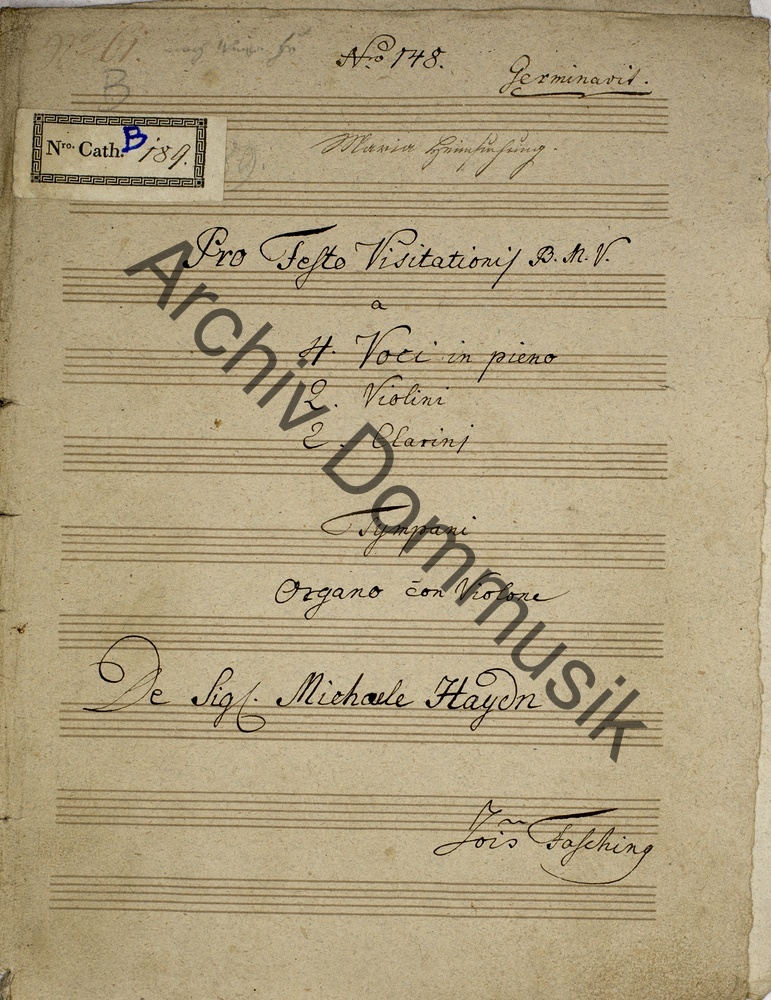 Nro 148.
Germinavit.
B
Nro. Cath. B 189.
Maria Heimsuchung.
Pro Festo Visitationis B. M. V.
a
4. Voci in pieno
2. Violini
2. Clarini
Tympani
Organo con Violone
De Sigl. Michaele Haydn
Jois Fasching
Archiv Dommusik